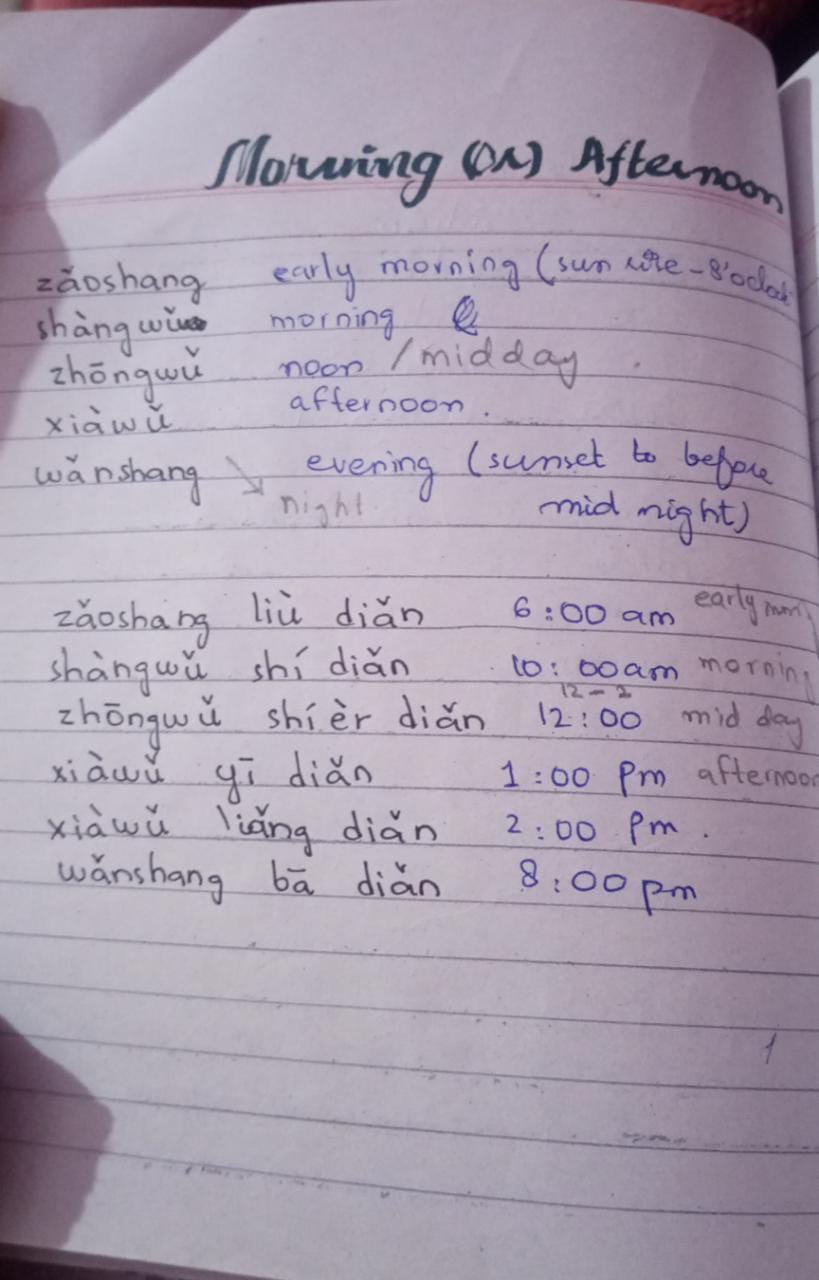 Morning (or) Afternoon
zǎoshang early morning (sun rise - 8'oclock
shàngwǔ morning
zhōngwǔ noon / midday
xiàwǔ afternoon.
wǎnshang evening (sunset to before
night mid night)
zǎoshang liù diǎn 6:00 am early
shàngwǔ shí diǎn 10:00am morning
12-2
zhōngwǔ shí èr diǎn 12:00 mid day
xiàwǔ yī diǎn 1:00 Pm afternoon
xiàwǔ liǎng diǎn 2:00 Pm.
wǎnshang bā diǎn 8:00 pm
1